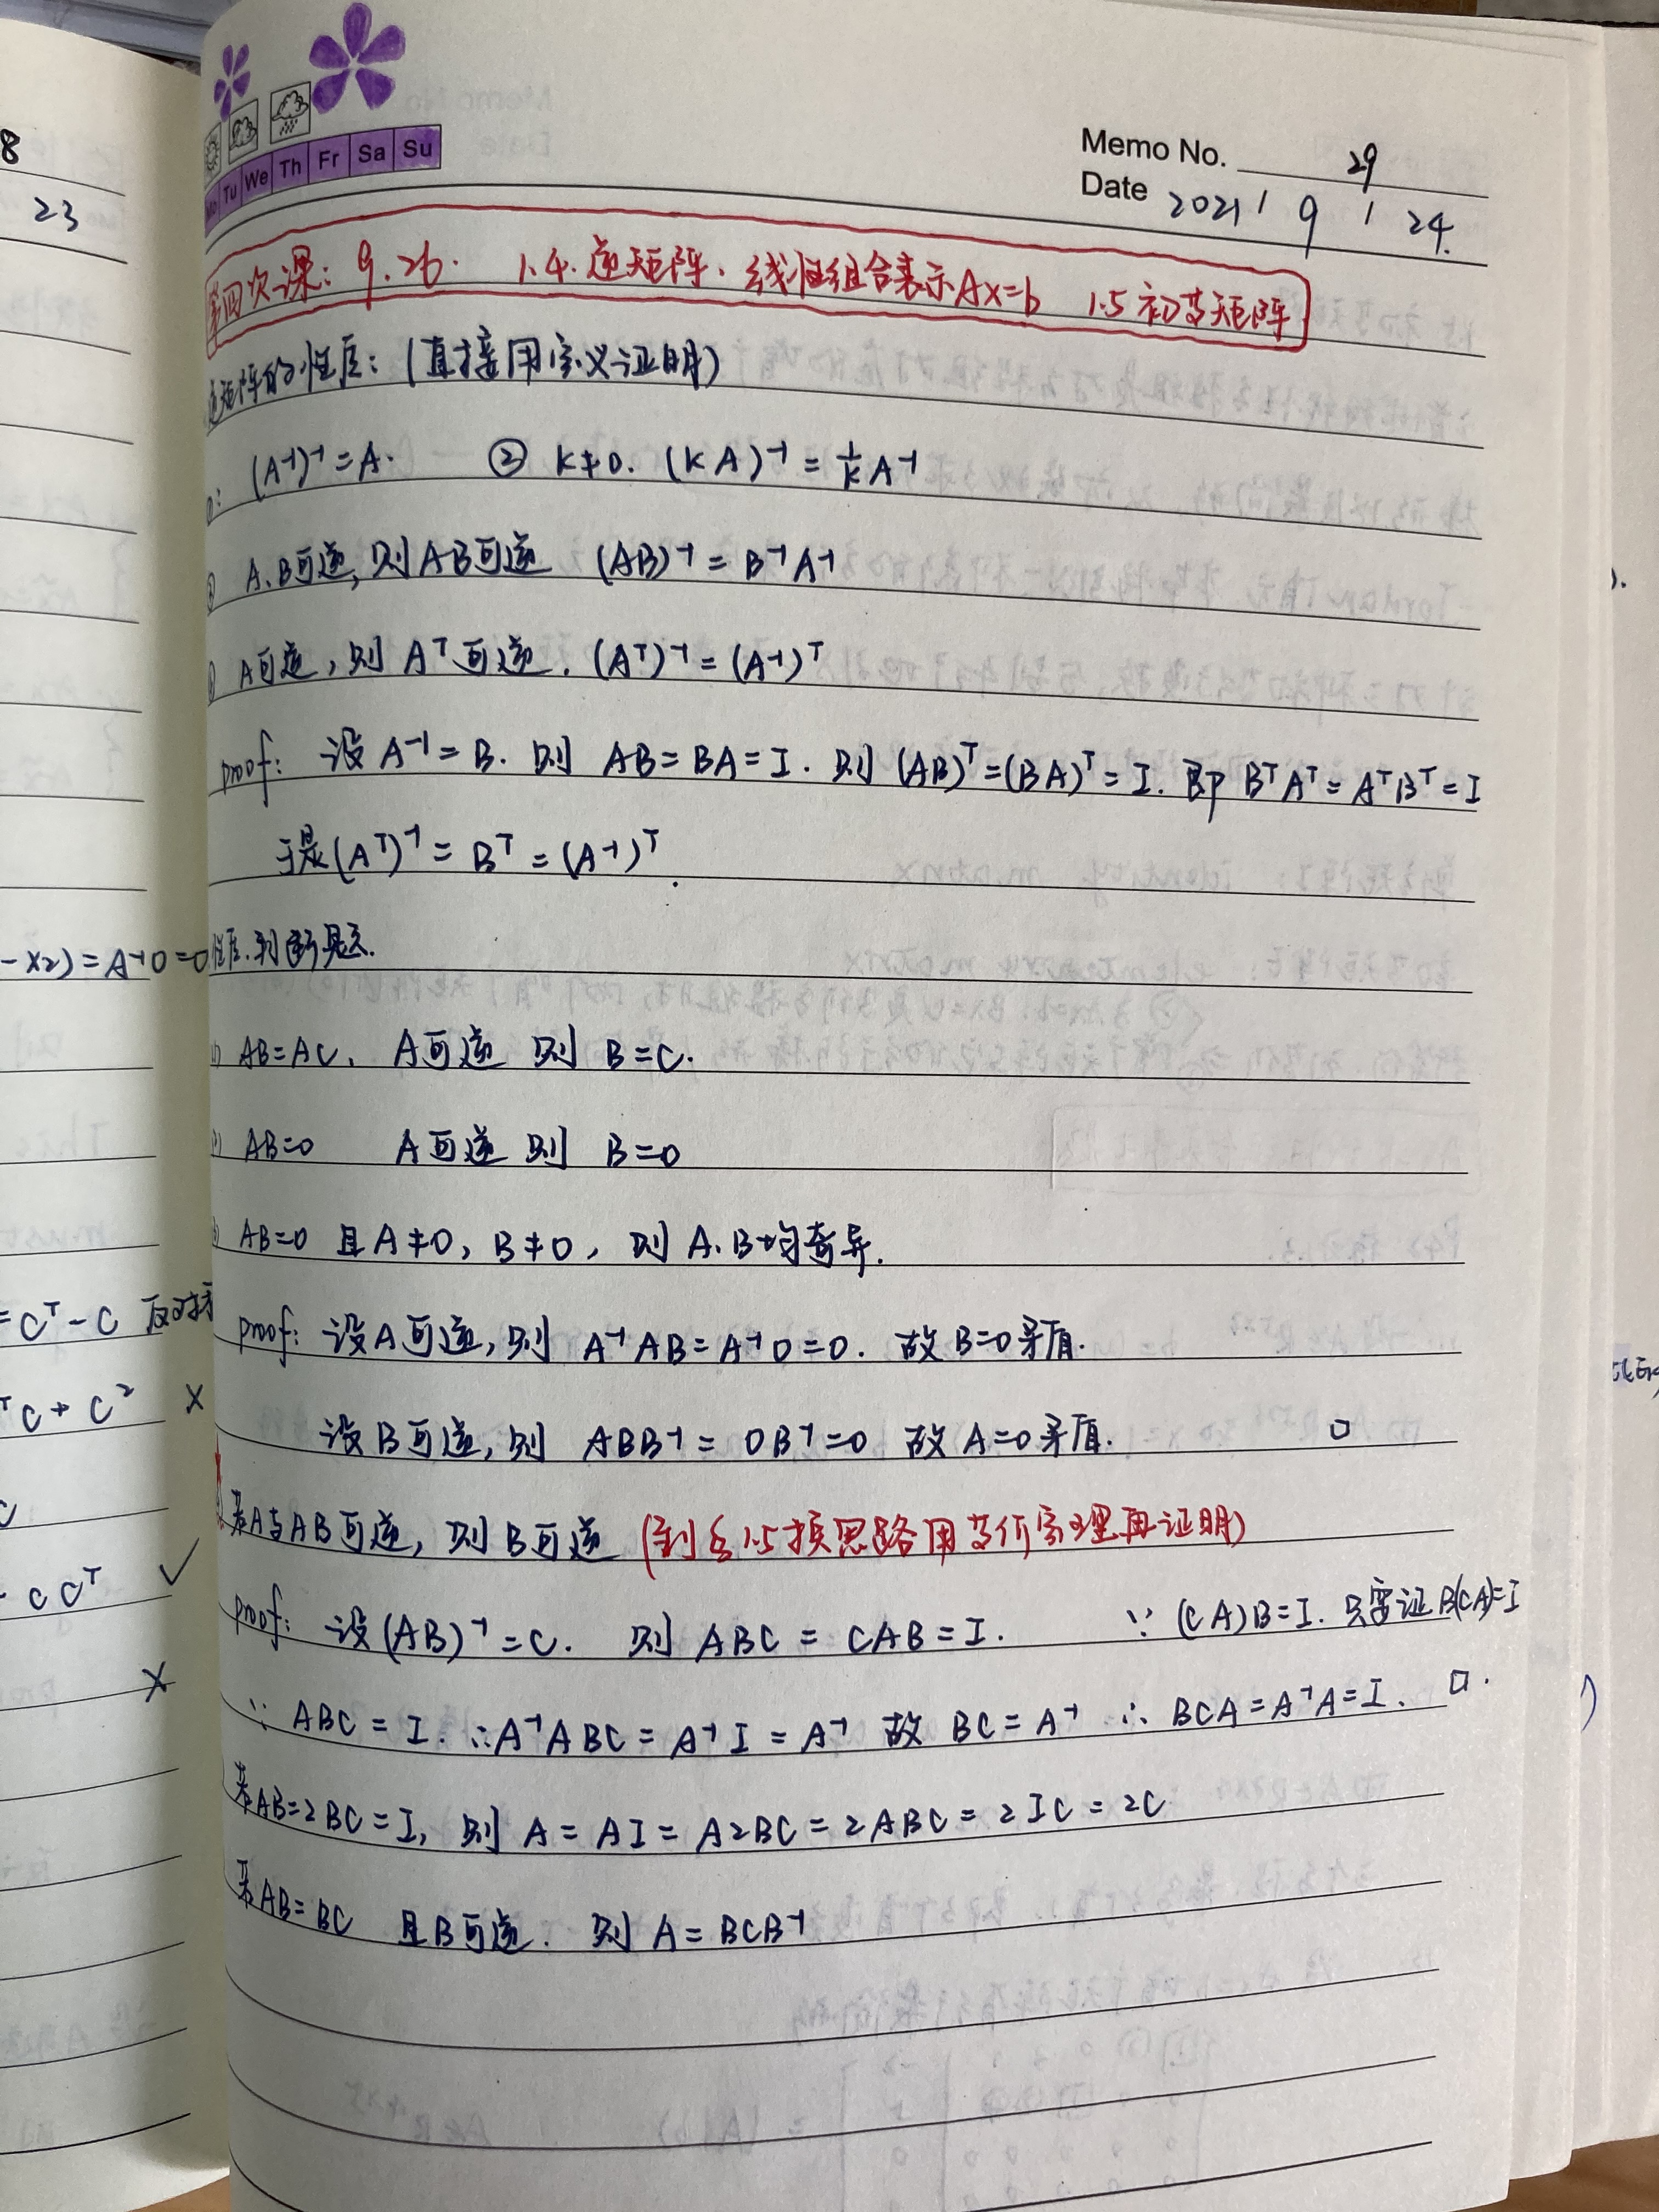 8
23
- x2) = A⁻¹0 = 0
= Cᵀ - C 反对称
ᵀC + C² ×
CCᵀ ✓
×
Mo Tu We Th Fr Sa Su
Memo No. 29
Date 2021 / 9 / 24.
第四次课: 9.26. 1.4. 逆矩阵. 线性组合表示Ax=b 1.5 初等矩阵
逆矩阵的性质: (直接用定义证明)
①: (A⁻¹)⁻¹ = A. ② k≠0. (kA)⁻¹ = 1/k A⁻¹
③ A.B可逆, 则AB可逆 (AB)⁻¹ = B⁻¹A⁻¹
④ A可逆, 则 Aᵀ可逆. (Aᵀ)⁻¹ = (A⁻¹)ᵀ
proof: 设 A⁻¹ = B. 则 AB = BA = I. 则 (AB)ᵀ = (BA)ᵀ = I. 即 BᵀAᵀ = AᵀBᵀ = I
于是 (Aᵀ)⁻¹ = Bᵀ = (A⁻¹)ᵀ.
性质.判断题.
(1) AB=AC. A可逆 则 B=C.
(2) AB=0 A可逆 则 B=0
(3) AB=0 且 A≠0, B≠0, 则 A.B均奇异.
proof: 设A可逆, 则 A⁻¹AB = A⁻¹0 = 0. 故 B=0 矛盾.
设B可逆, 则 ABB⁻¹ = 0B⁻¹ = 0 故 A=0 矛盾. □
若A与AB可逆, 则 B可逆 (到了1.5换思路用等价定理再证明)
proof: 设 (AB)⁻¹ = C. 则 ABC = CAB = I. ∵ (CA)B = I. 只要证 B(CA)=I
∵ ABC = I. ∴ A⁻¹ABC = A⁻¹I = A⁻¹ 故 BC = A⁻¹ ∴ BCA = A⁻¹A = I. □.
若AB=2BC=I, 则 A = AI = A2BC = 2ABC = 2IC = 2C
若AB=BC 且B可逆. 则 A = BCB⁻¹